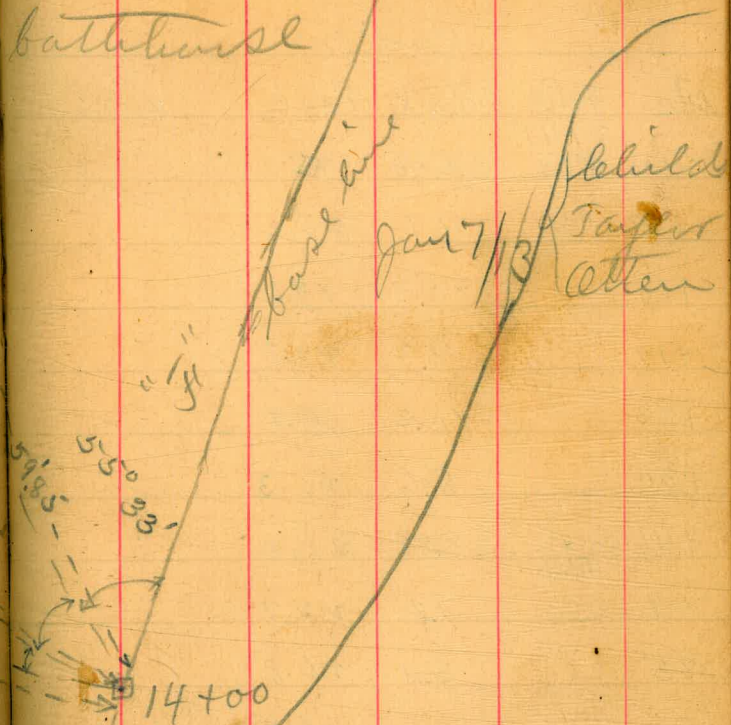 bathhouse
base line
Jan 7/13
Child
Taylor
Otten
"H"
55° 33'
59.85'
14+00